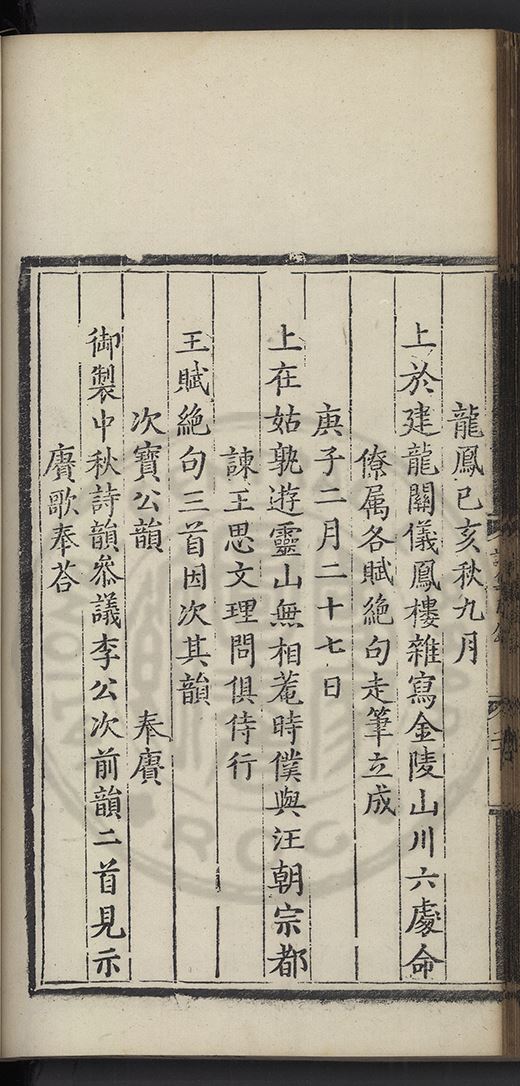 龍鳳己亥秋九月
上於建龍關儀鳳樓雜寫金陵山川六處命
僚属各賦絶句走筆立成
庚子二月二十七日
上在姑孰遊靈山無相菴時僕與汪朝宗都
諫王思文理問俱侍行
王賦絶句三首因次其韻
次寶公韻 奉賡
御製中秋詩韻叅議李公次前韻二首見示
賡歌奉荅